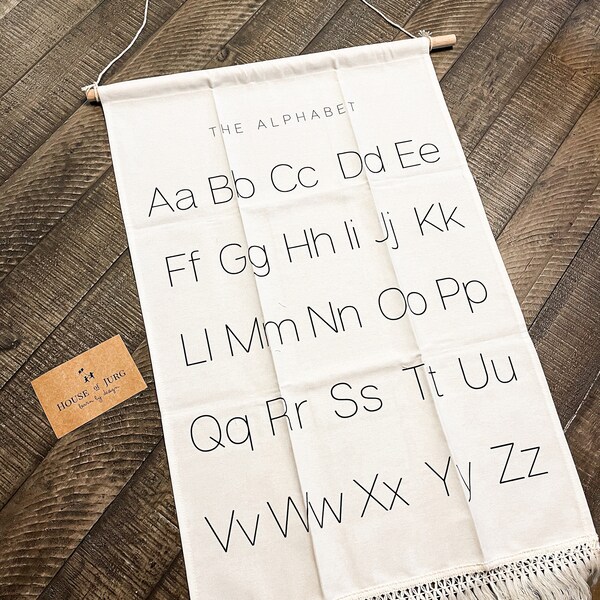 THE ALPHABET
Aa Bb Cc Dd Ee
Ff Gg Hh Ii Jj Kk
Ll Mm Nn Oo Pp
Qq Rr Ss Tt Uu
Vv Ww Xx Yy Zz
HOUSE of JURG
learn by design